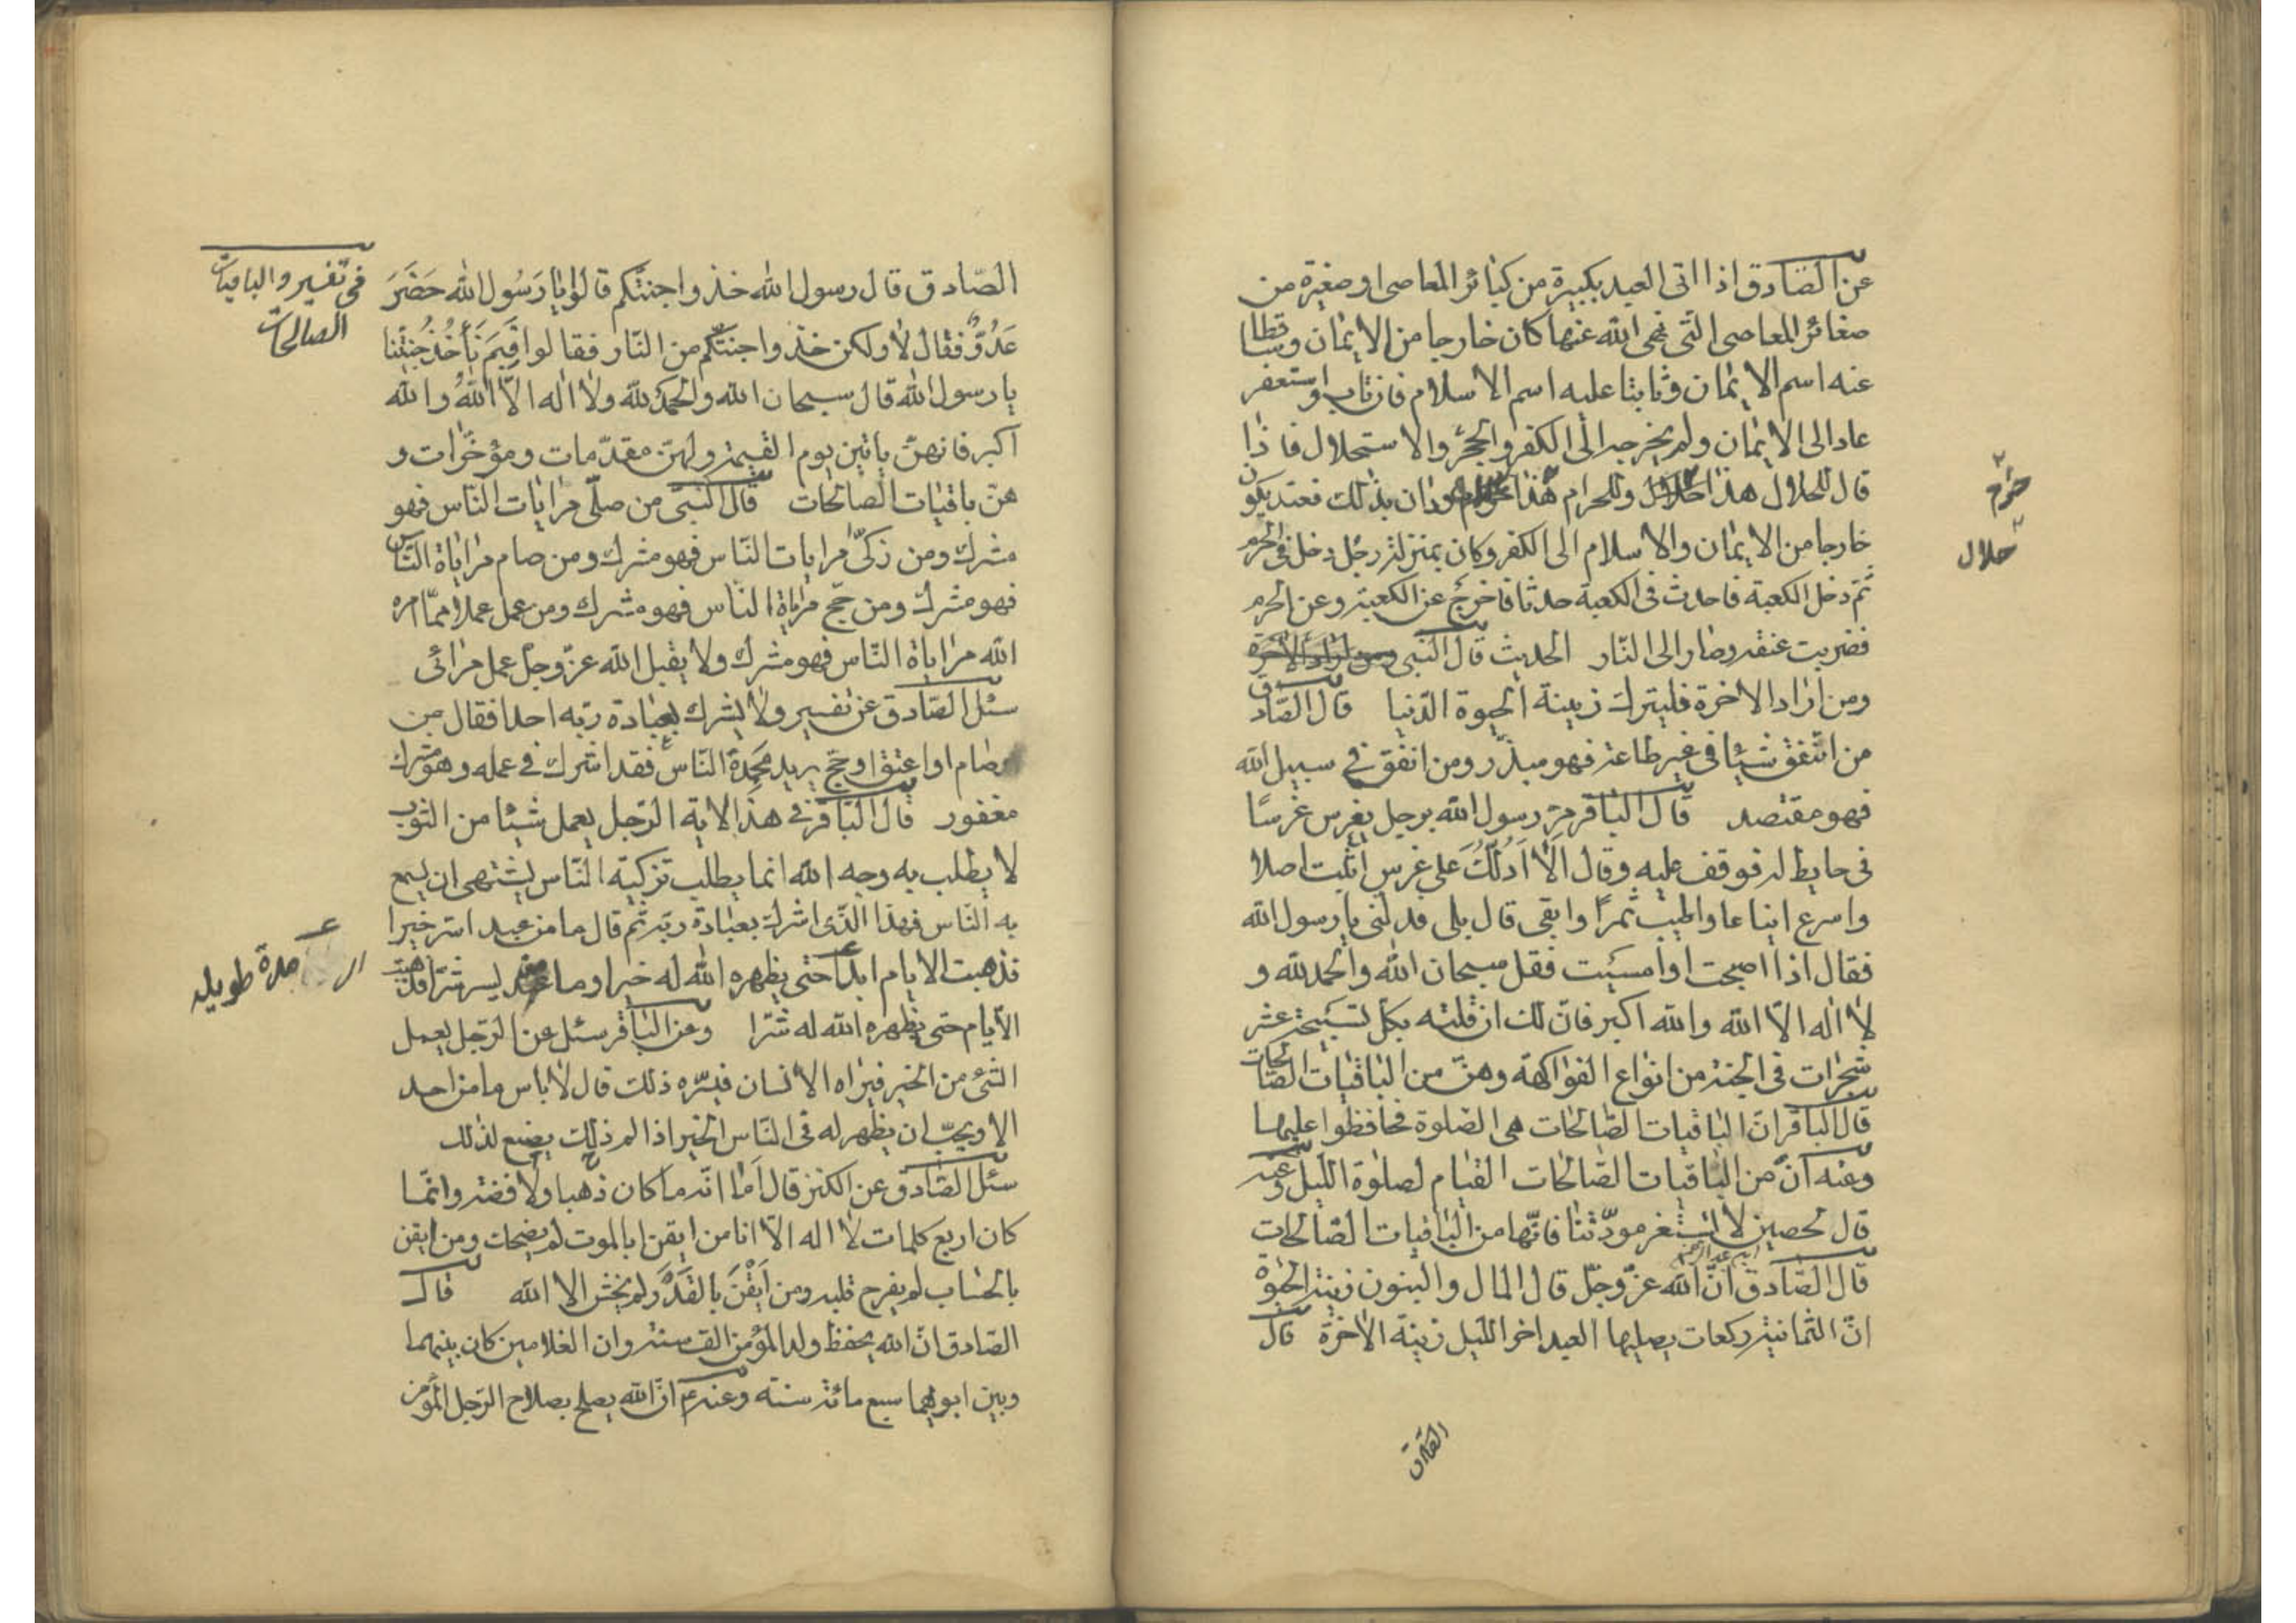 عن الصّادق اذا اتى العبد بكبيرة من كبائر المعاصى او صغيرة من
صغائر المعاصى التّى نهى الله عنها كان خارجا من الايمان وساقطا
عنه اسم الايمان وثابتا عليه اسم الاسلام فان تاب واستغفر
عاد الى الايمان ولم يخرجه الى الكفر والجحر والاستحلال فاذا
قال للحلال هذا وللحرام هذا ودان بذلك فعند يكون
حرام
حلال
خارجا من الايمان والاسلام الى الكفر وكان بمنزلة رجل دخل فى الحرم
ثم دخل الكعبة فاحدث فى الكعبة حدثا فاخرج عن الكعبة وعن الحرم
فضربت عنقه وصار الى النّار الحديث قال النّبى
ومن اراد الاخرة فليترك زينة الحيوة الدّنيا قال الصّادق
من انفق شيئا فى غير طاعة فهو مبذّر ومن انفق فى سبيل الله
فهو مقتصد قال الباقر مرّ رسول الله برجل يغرس غرسًا
فى حايط له فوقف عليه وقال اَلا اَدُلّكَ على غرس اثبت اصلا
واسرع ايناعا واطيب ثمرًا وابقى قال بلى فدلنى يا رسول الله
فقال اذا اصبحت او امسيت فقل سبحان الله والحمد لله و
لا اله الّا الله والله اكبر فانّ لك ان قلته بكلّ تسبيحة عشر
شجرات فى الجنة من انواع الفواكهة وهنّ من الباقيات الصّالحات
قال الباقر انّ الباقيات الصّالحات هى الصّلوة فحافظوا عليها
وعنه انّ من الباقيات الصّالحات القيام لصلوة اللّيل وعنه
قال لحصين لا تستغر مودّتنا فانّها من الباقيات الصّالحات
قال الصّادق انّ الله عزّ وجلّ قال المال والبنون زينة الحيوة
انّ الثمانية ركعات يصليها العبد اخر اللّيل زينة الاخرة قال
الصّادق
الصّادق قال رسول الله خذوا جنّتكم قالوا يا رَسُول الله حَضَرَ
فى تفسير والباقيات
الصالحات
عَدُوٌّ فقال لا ولكن خذوا جنّتكم من النّار فقالوا فِيَم نَأخُذ جُنتَّنا
يا رسول الله قال سبحان الله والحمد لله ولا اله الّا اللهُ والله
اكبر فانهنّ ياتين يوم القيمة ولهنّ مقدّمات ومؤخّرات و
هنّ باقيات الصّالحات قال النّبى من صلّى مرايات النّاس فهو
مشرك ومن زكىّ مرايات النّاس فهو مشرك ومن صام مراياة النّاس
فهو مشرك ومن حجّ مراياة النّاس فهو مشرك ومن عمل عملا ممّا امره
الله مراياة النّاس فهو مشرك ولا يقبل الله عزّ وجلّ عمل مرائى
سئل الصّادق عن تفسير ولا يشرك بعبادة ربّه احدا فقال من
صام او اعتق او حجّ يريد مَحمِدة النّاس فقد اشرك فى عمله وهو مشرك
مغفور قال الباقر فى هذا الاية الرّجل يعمل شيئا من الثّوب
لا يطلب به وجه الله انما يطلب تزكيته النّاس يشتهى ان يسمع
به النّاس فهذا الّذى اشرك بعبادة ربّه ثم قال ما من عبد اسرّ خيرا
فذهبت الايام ابدا حتى يظهره الله له خيرا وما من عبد يسر شرّا فذهبت
مدة طويلة
الايّام حتى يظهره الله له شرّا وعن الباقر سئل عن الرّجل يعمل
الشئ من الخير فيراه الانسان فيسّره ذلك قال لا باس ما من احد
الا ويحبّ ان يظهر له فى النّاس الخير اذا لم ذلك يصنع لذلك
سئل الصّادق عن الكنز قال امّا انّه ما كان ذهبا ولا فضة وانّما
كان اربع كلمات لا اله الّا انا من ايقن ابالموت لم يضحك ومن ايقن
بالحساب لم يفرح قلبه ومن اَيْقَنَ بالقَدَر لم يخش الا الله قال
الصّادق انّ الله يحفظ ولد المؤمن الف سنة وان الغلامين كان بينهما
وبين ابويهما سبع مائة سنة وعنه ع انّ الله يصلح بصلاح الرّجل المؤمن